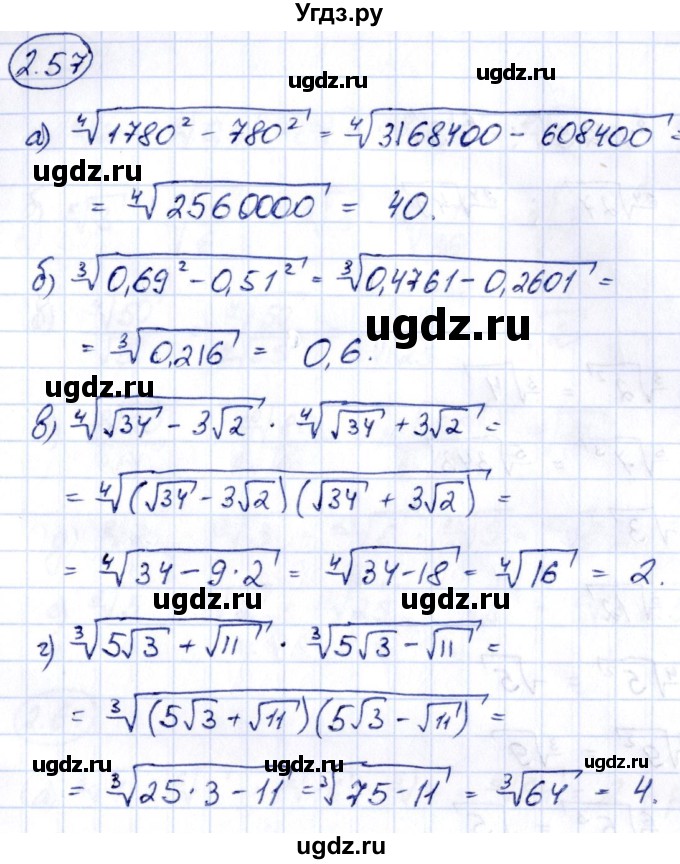 Угдз.ру
2.57
ugdz.ru ugdz.ru
а) ⁴√(1780² - 780²) = ⁴√(3168400 - 608400) =
ugdz.ru
= ⁴√2560000 = 40.
ugdz.ru
б) ³√(0,69² - 0,51²) = ³√(0,4761 - 0,2601) =
ugdz.ru
= ³√0,216 = 0,6.
ugdz.ru
в) ⁴√(√34 - 3√2) · ⁴√(√34 + 3√2) =
ugdz.ru
= ⁴√((√34 - 3√2)(√34 + 3√2)) =
ugdz.ru
= ⁴√(34 - 9·2) = ⁴√(34 - 18) = ⁴√16 = 2.
ugdz.ru ugdz.ru
г) ³√(5√3 + √11) · ³√(5√3 - √11) =
ugdz.ru
= ³√((5√3 + √11)(5√3 - √11)) =
ugdz.ru ugdz.ru ugdz.ru
= ³√(25·3 - 11) = ³√(75 - 11) = ³√64 = 4.
ugdz.ru